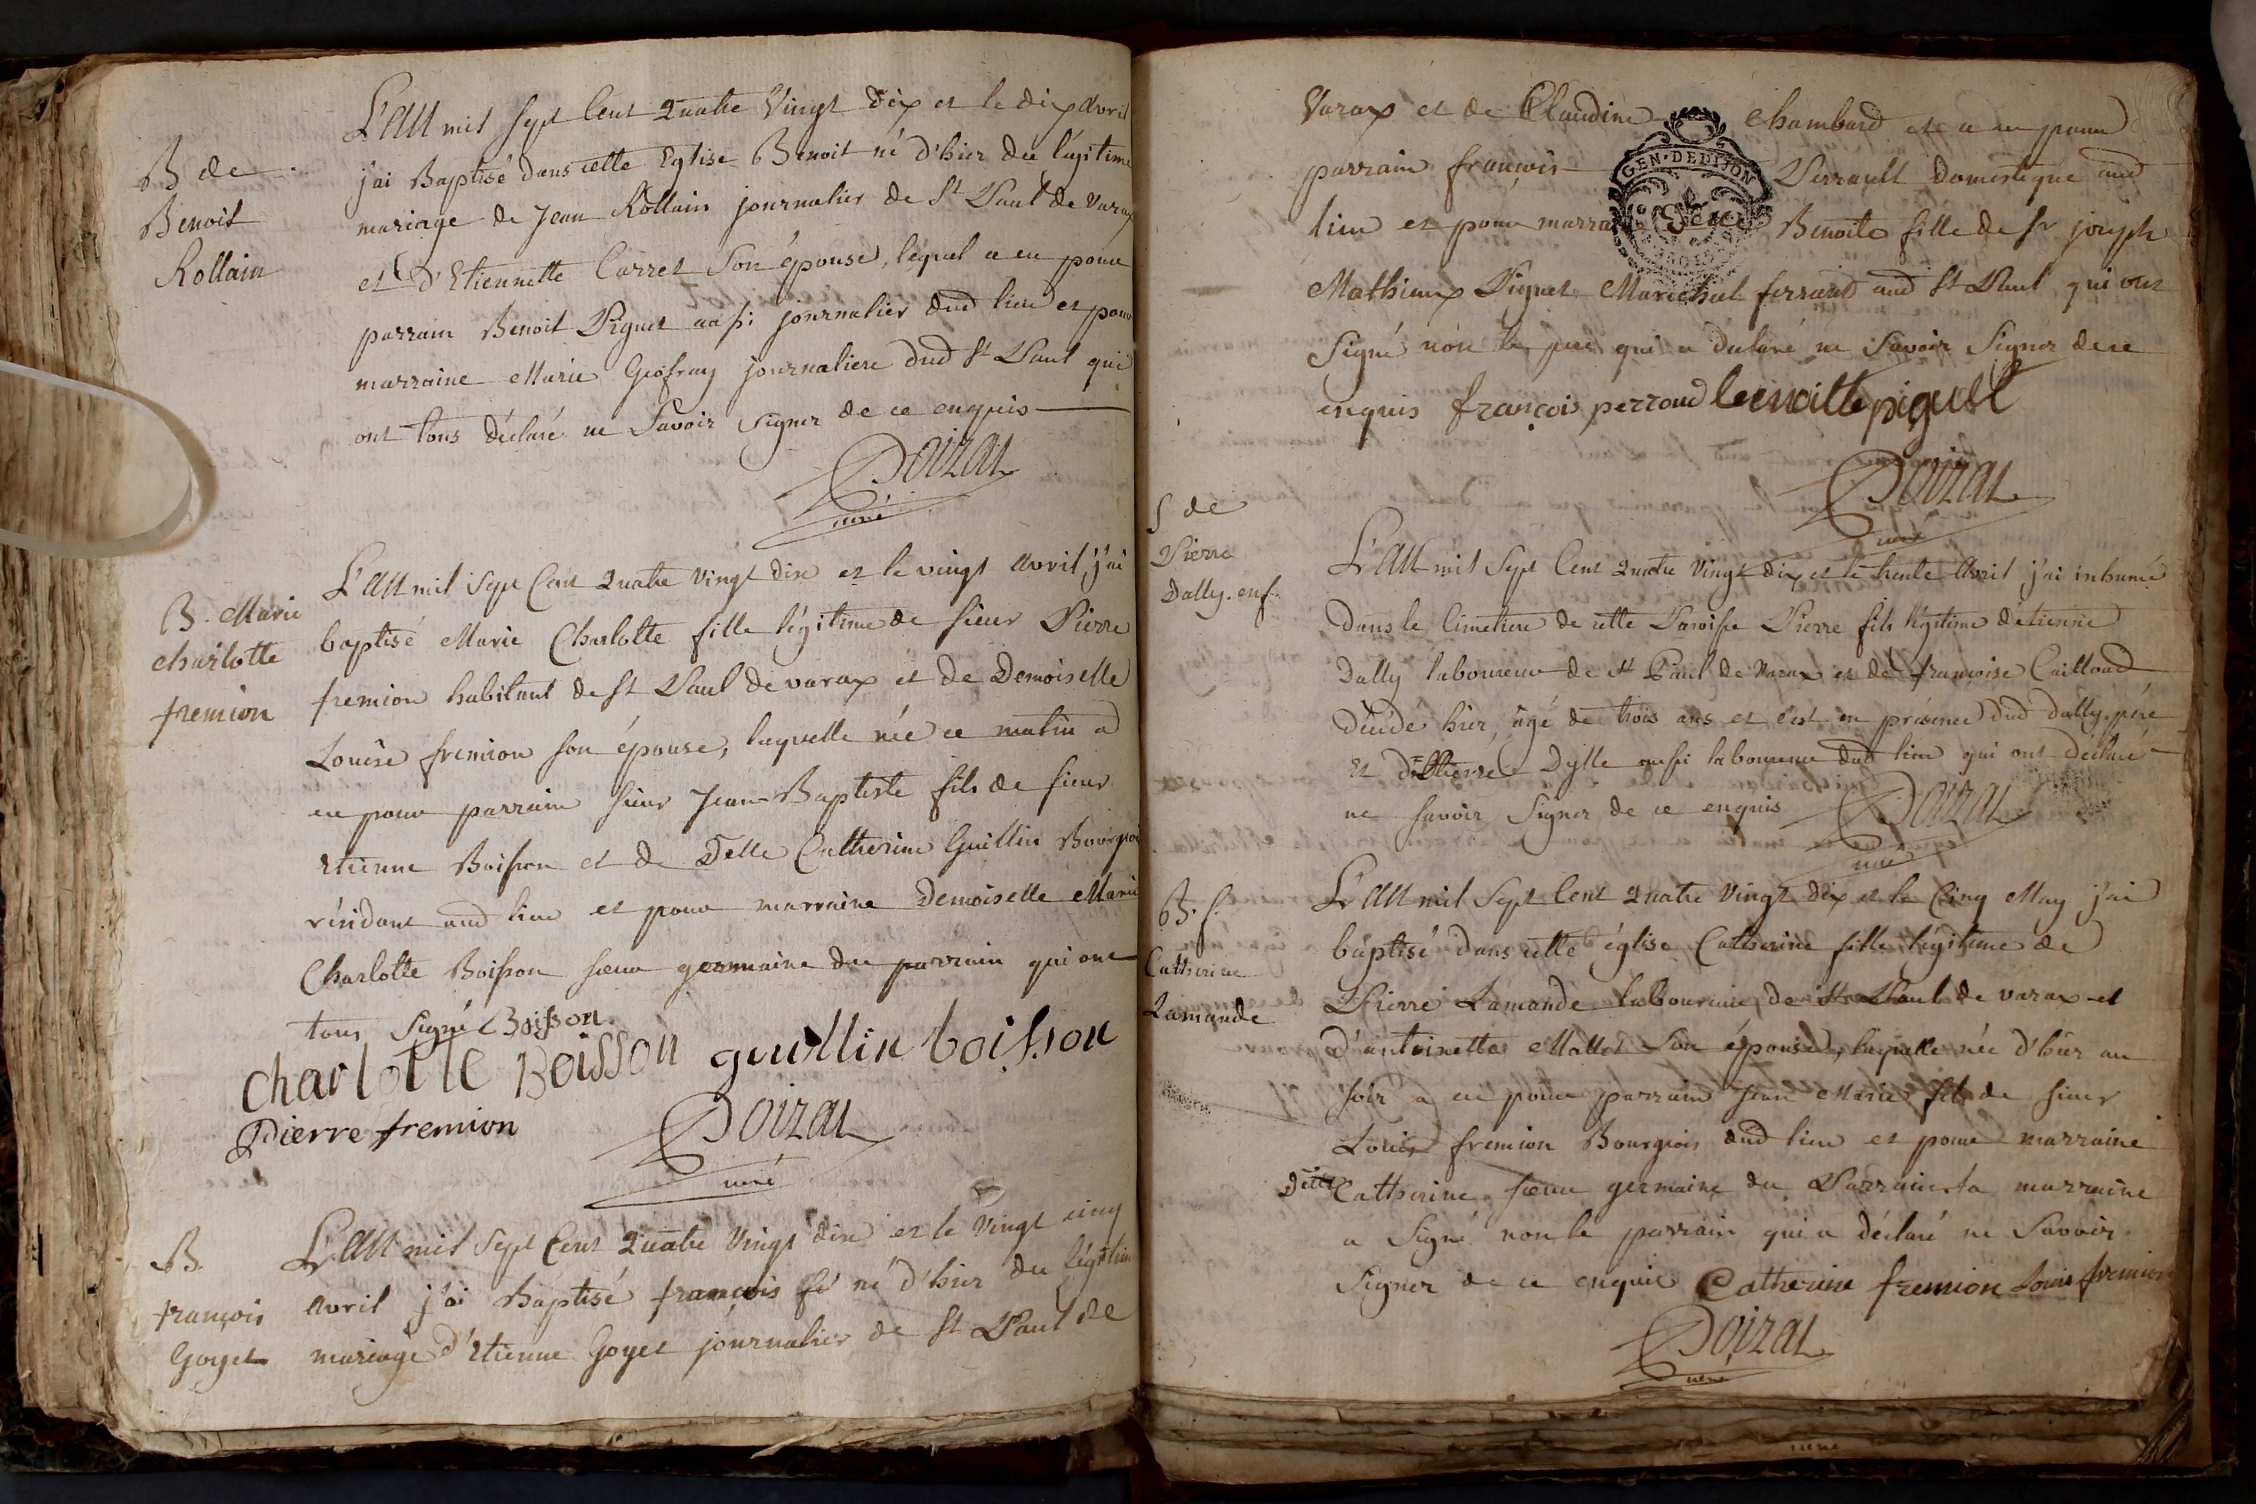 B de
Benoit
Rollain
L'an mil sept Cent Quatre Vingt dix et le dix avril
j'ai Baptisé dans cette Eglise Benoit né d'hier du légitime
mariage de Jean Rollain journalier de St Paul de Varax
et d'Etiennette Carret son épouse, lequel a eu pour
parrain Benoit Piguet aussi journalier dud lieu et pour
marraine Marie Geofray journaliere dud St Paul qui
ont tous déclaré ne Savoir signer de ce enquis
Doizat
curé
B. Marie
charlotte
fremion
L'an mil sept Cent Quatre vingt dix et le vingt avril j'ai
baptisé Marie Charlotte fille légitime de sieur Pierre
fremion habitant de St Paul de varax et de Demoiselle
Louise fremion son épouse, laquelle née ce matin a
eu pour parrain sieur Jean Baptiste fils de sieur
Etienne Boisson et de Delle Catherine Guillin Bourgeois
résidant aud lieu et pour marraine Demoiselle Marie
Charlotte Boisson soeur germaine du parrain qui ont
tous Signé Boisson
charlotte Boisson guillin boisson
Pierre fremion Doizat
curé
B.
françois
Goyet
L'an mil sept Cent Quatre Vingt dix et le vingt cinq
avril j'ai Baptisé françois né d'hier du légitime
mariage d'Etienne Goyet journalier de St Paul de
Varax et de Claudine Chambard et a eu pour
parrain françois Perrault domestique aud
lieu et pour marraine Benoite fille de sr joseph
Mathieux Piguet Marechal ferrant aud St Paul qui ont
Signé non le pere qui a déclaré ne Savoir Signer de ce
enquis françois perroud benoitte piguet
GEN·DEDIJON
Doizat
curé
S de
Pierre
Dally. enf.
L'an mil Sept Cent Quatre Vingt dix et le trente Avril j'ai inhumé
dans le Cimetiere de cette Paroisse Pierre fils légitime d'étienne
Dally laboureur de St Paul de Varax et de françoise Cailloud
décédé hier, âgé de trois ans et c'est en présence dud dally père
et de Dylle aussi laboureur dud lieu qui ont déclaré
ne savoir Signer de ce enquis Doizat
curé
B. f.
Catherine
Lamande
L'an mil Sept Cent Quatre Vingt dix et le Cinq May j'ai
baptisé dans cette église Catherine fille légitime de
Pierre Lamande laboureur de St Paul de varax et
d'antoinette Mallet son épouse, laquelle née d'hier au
soir a eu pour parrain Jean Marie fils de sieur
Louis fremion Bourgeois dud lieu et pour marraine
Delle Catherine soeur germaine du Parrain la marraine
a Signé non le parrain qui a déclaré ne Savoir
Signer de ce enquis Catherine fremion Louis fremion
Doizat
curé